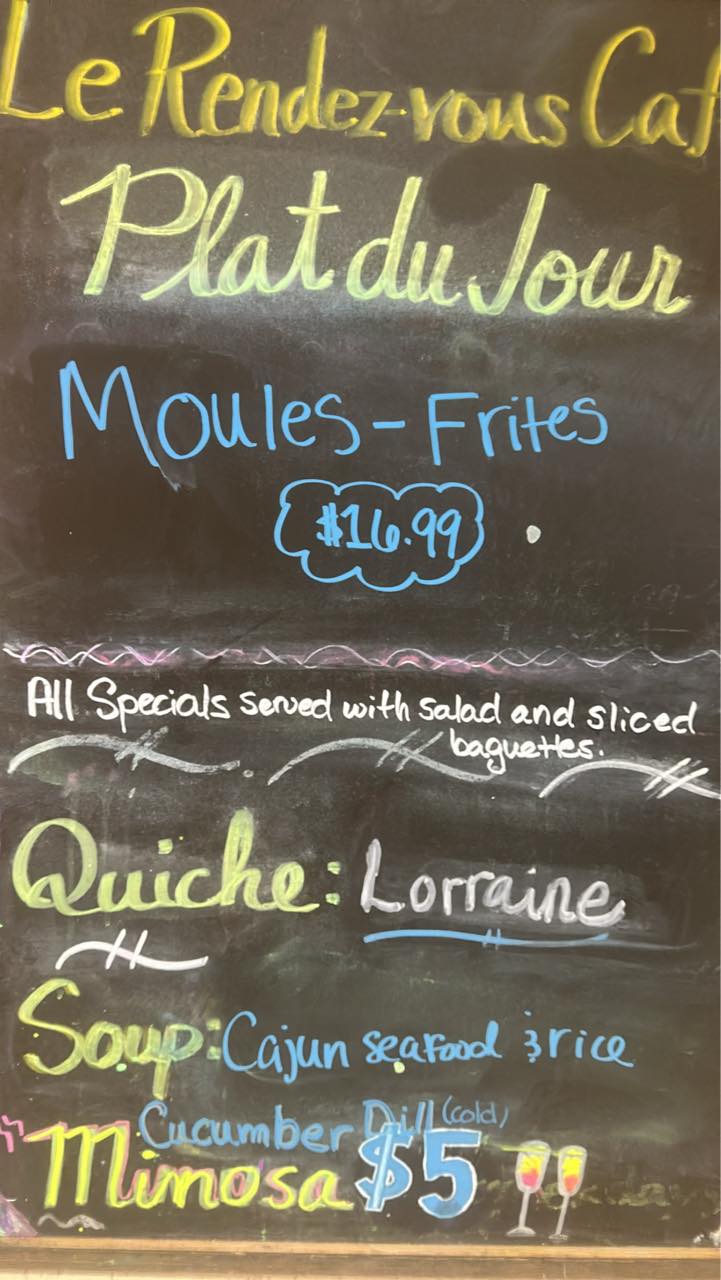 Le Rendez-vous Caf
Plat du Jour
Moules-Frites
$16.99
All Specials served with salad and sliced
baguettes.
Quiche: Lorraine
Soup: Cajun seafood & rice
Cucumber Dill (cold)
Mimosa $5